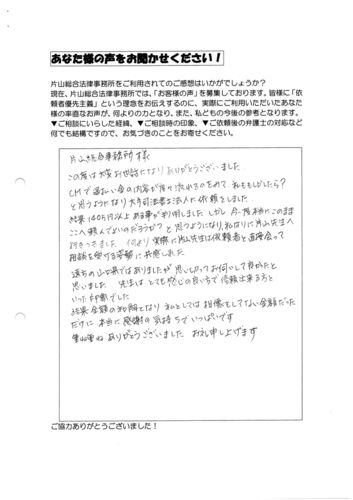 あなた様の声をお聞かせください!
片山総合法律事務所をご利用されてのご感想はいかがでしょうか?
現在、片山総合法律事務所では、「お客様の声」を募集しております。皆様に「依
頼者優先主義」という理念をお伝えするのに、実際にご利用いただいたあなた
様の率直なお声が、何よりの力となり、また、私どもの今後の参考となります。
▼ご相談にいらした経緯、▼ご相談時の印象、▼ご依頼後の弁護士の対応など
何でも結構ですので、お気づきのことをお寄せください。
片山総合事務所 様
この度は大変お世話になりありがとうございました
CMで過払い金の内容が度々流れるので 私ももしかしたら?
と思うようになり大手司法書士法人に依頼をしました
結果140万以上ある事が判明しました しかし 今度は本当にこのまま
ここへ頼んでよいのだろうか? と思うようになり、私なりに片山先生へ
行きつきました 何より 実際に片山先生は依頼者と直接会って
相談を受ける姿勢に共感しれ
遠ちの山口県ではありましたが 思いきってお伺いして良かったと
思いました 先生は とても感じの良い方で信頼出来る方と
いった印象でした
結果 金額の和解となり 私としては想像もしてない金額だった
だけに 本当に感謝の気持ちでいっぱいです
重ね重ね ありがとうございました お礼申し上げます
ご協力ありがとうございました!